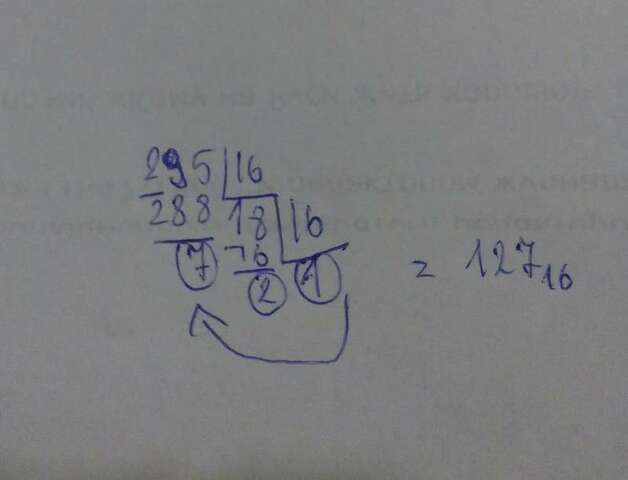 295 16
288 18 16
7 16
2 1
= 127₁₆